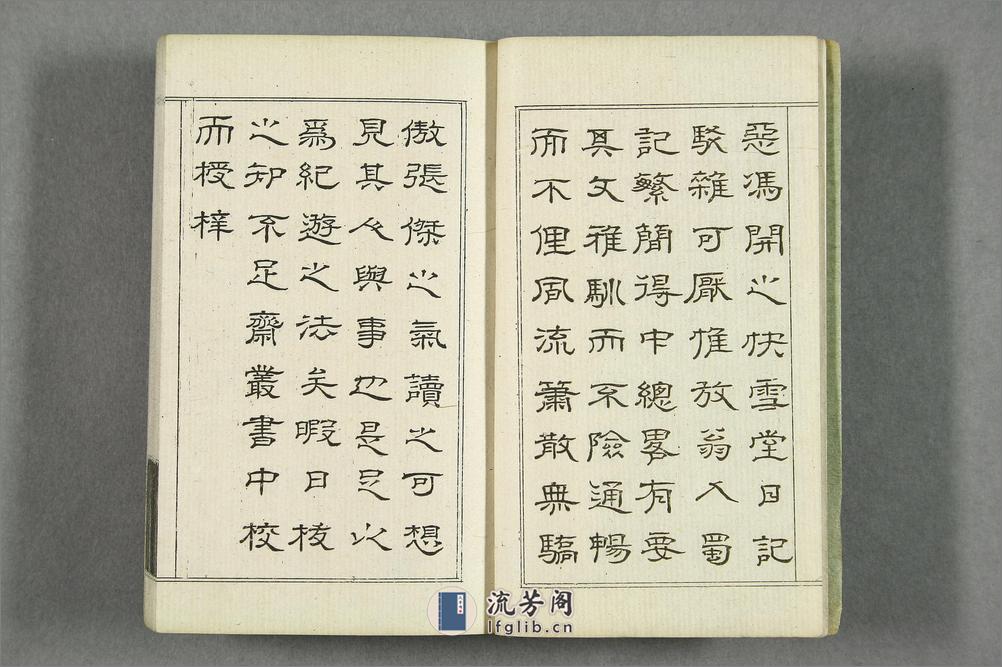 惡馮開之快雪堂日記
駁雜可厭惟放翁入蜀
記繁簡得中總畧有要
其文雅馴而不險通暢
而不俚風流蕭散無驕
傲張傑之氣讀之可想
見其人與事也是足以
為紀遊之法矣暇日
之知不足齋叢書中校
而授梓
流芳阁
lfglib.cn